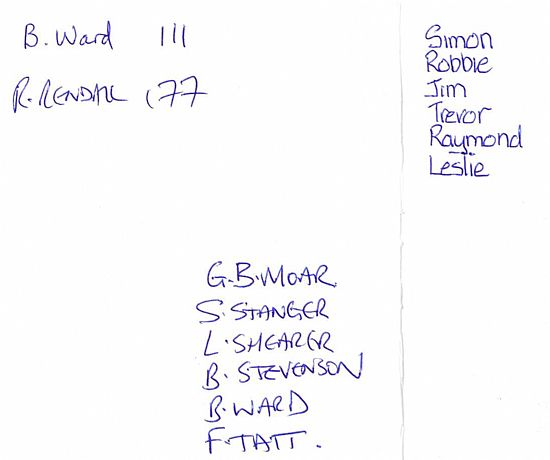 B. Ward 111
R. RENDALL 177
Simon
Robbie
Jim
Trevor
Raymond
Leslie
G.B. MOAR
S. STANGER
L. SHEARER
B. STEVENSON
B. WARD
F. TATT.